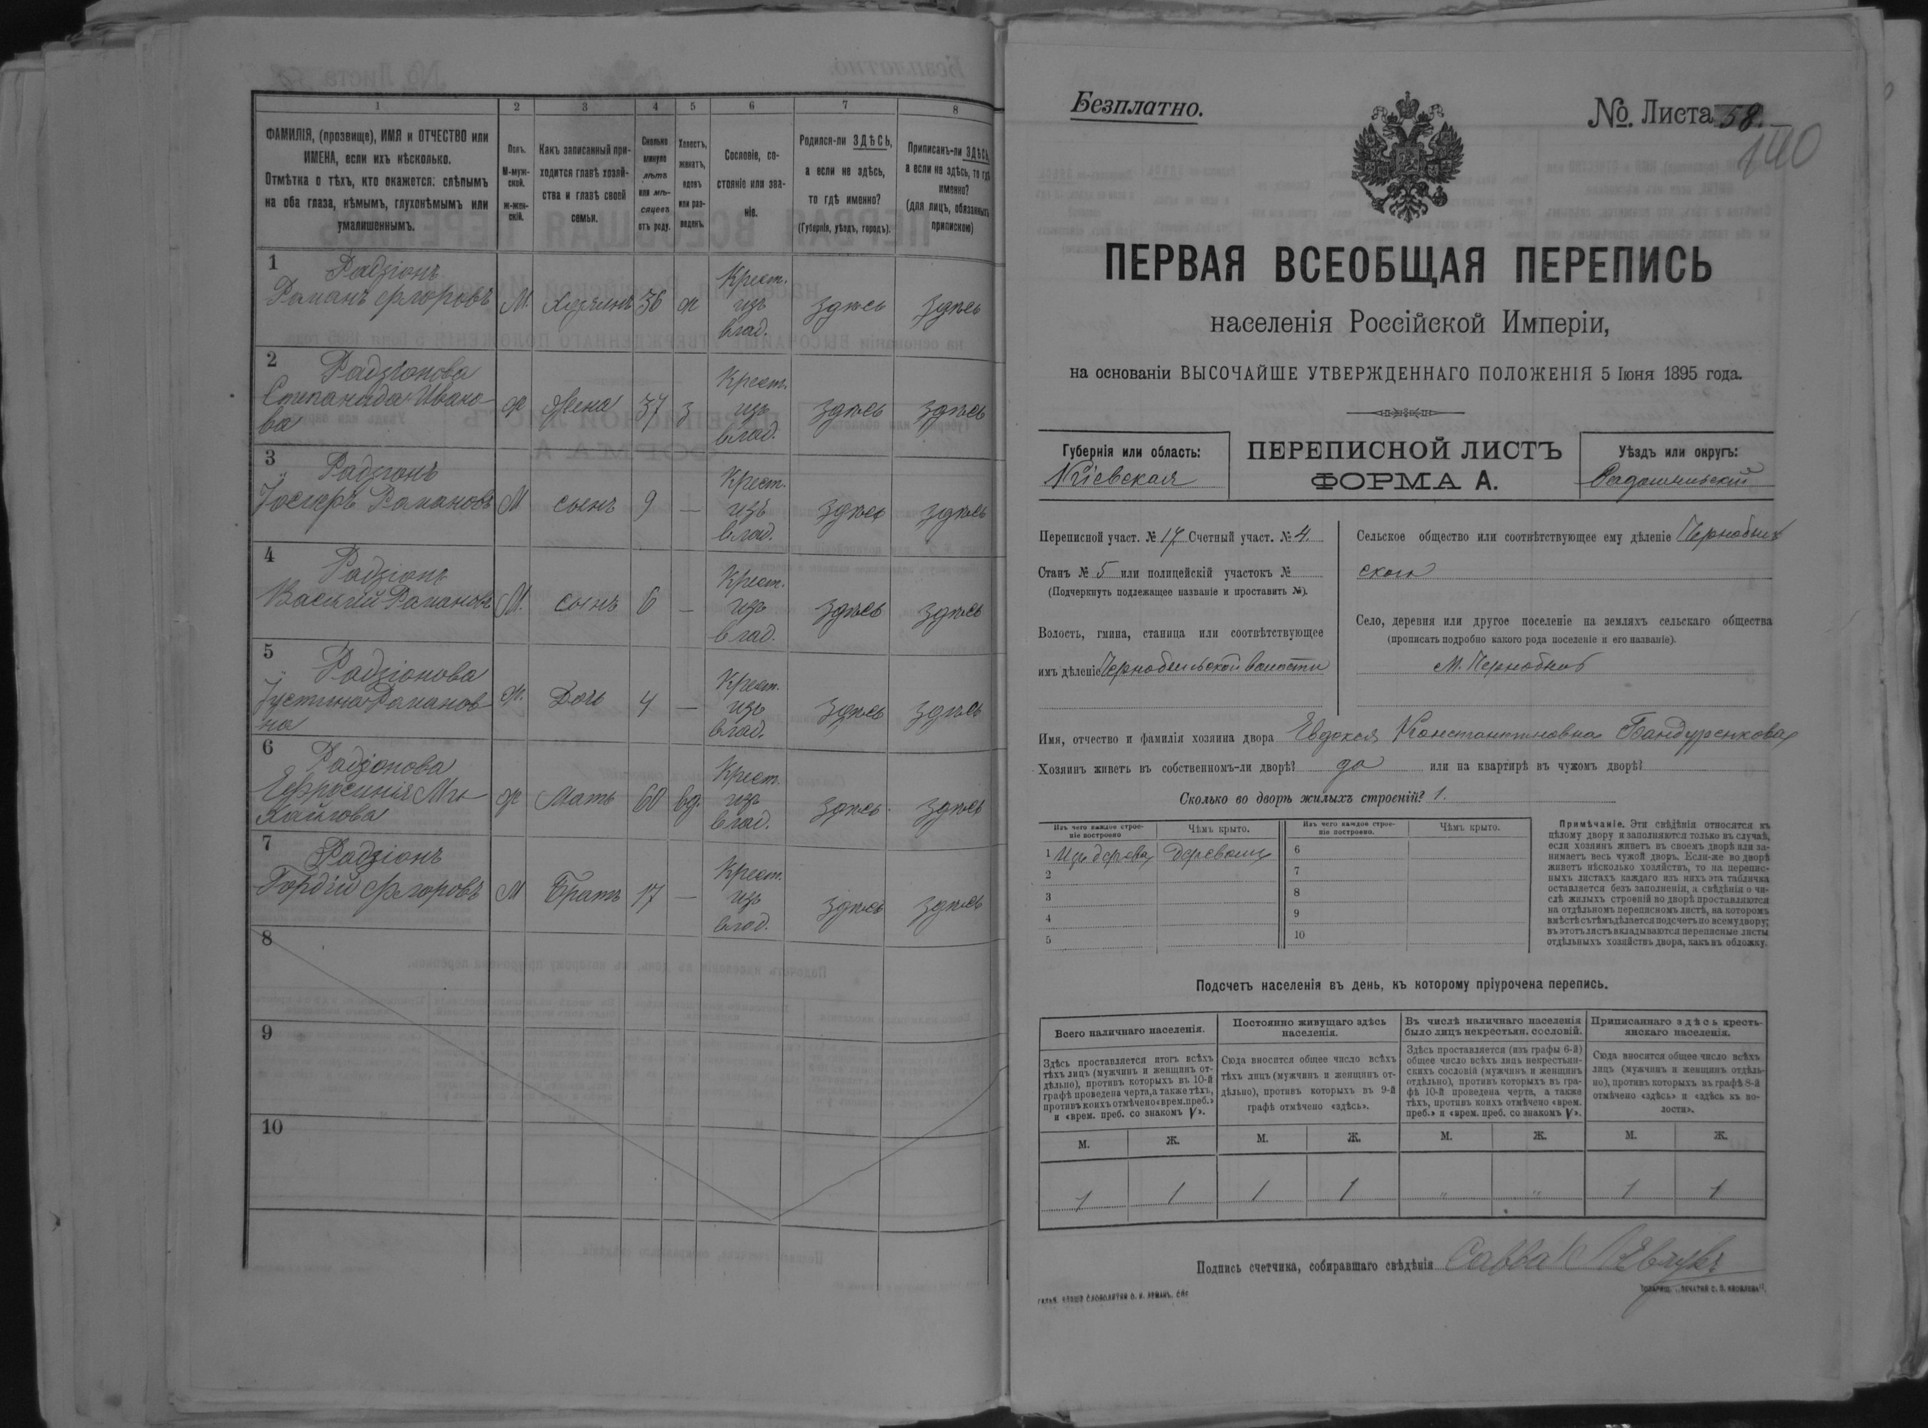 1 2 3 4 5 6 7 8
ФАМИЛІЯ, (прозвище), ИМЯ и ОТЧЕСТВО или
ИМЕНА, если ихъ нѣсколько.
Отмѣтка о тѣхъ, кто окажется: слѣпымъ
на оба глаза, нѣмымъ, глухонѣмымъ или
умалишеннымъ.
Полъ.
М-муж-
ской.
ж-жен-
скій.
Какъ записанный при-
ходится главѣ хозяй-
ства и главѣ своей
семьи.
Сколько
минуло
лѣтъ
или мѣ-
сяцевъ
отъ роду.
Холостъ,
женатъ,
вдовъ
или раз-
веденъ.
Сословіе, со-
стояніе или зва-
ніе.
Родился-ли ЗДѢСЬ,
а если не здѣсь,
то гдѣ именно?
(Губернія, уѣздъ, городъ).
Приписанъ-ли ЗДѢСЬ,
а если не здѣсь, то гдѣ
именно?
(для лицъ, обязанныхъ
припискою)
1 Радзіонъ
Романъ Фіоровъ М. Хозяинъ 36 ж Крест. изъ влад. здѣсь здѣсь
2 Радзіонова
Степанида Ивано-
ва ж Жена 37 з Крест. изъ влад. здѣсь здѣсь
3 Радзіонъ
Іосифъ Романовъ М сынъ 9 — Крест. изъ влад. здѣсь здѣсь
4 Радзіонъ
Василій Романовъ М. сынъ 6 — Крест. изъ влад. здѣсь здѣсь
5 Радзіонова
Іустина Романов-
на ж. Дочь 4 — Крест. изъ влад. здѣсь здѣсь
6 Радзіонова
Ефросинія Ми-
хайлова ж Мать 60 вд. Крест. изъ влад. здѣсь здѣсь
7 Радзіонъ
Гордій Фіоровъ М Братъ 17 — Крест. изъ влад. здѣсь здѣсь
8
9
10
Безплатно.
№ Листа 58.
140
ПЕРВАЯ ВСЕОБЩАЯ ПЕРЕПИСЬ
населенія Россійской Имперіи,
на основаніи ВЫСОЧАЙШЕ УТВЕРЖДЕННАГО ПОЛОЖЕНІЯ 5 Іюня 1895 года.
Губернія или область:
Кіевская
ПЕРЕПИСНОЙ ЛИСТЪ
ФОРМА А.
Уѣздъ или округъ:
Радомысльскій
Переписной участ. № 17 Счетный участ. № 4.
Станъ № 5 или полицейскій участокъ №
(Подчеркнуть подлежащее названіе и проставить №).
Волость, гмина, станица или соотвѣтствующее
имъ дѣленіе Чернобыльской волости
Сельское общество или соотвѣтствующее ему дѣленіе Чернобыль
скаго
Село, деревня или другое поселеніе на земляхъ сельскаго общества
(прописать подробно какого рода поселеніе и его названіе).
М. Чернобыль
Имя, отчество и фамилія хозяина двора Евдокія Константиновна Бандуренкова
Хозяинъ живетъ въ собственномъ-ли дворѣ? да или на квартирѣ въ чужомъ дворѣ?
Сколько во дворѣ жилыхъ строеній? 1.
Изъ чего каждое строе-
ніе построено
Чѣмъ крыто.
Изъ чего каждое строе-
ніе построено.
Чѣмъ крыто.
1 Изъ дерева Деревомъ 6
2 7
3 8
4 9
5 10
Примѣчаніе. Эти свѣдѣнія относятся къ
цѣлому двору и заполняются только въ случаѣ,
если хозяинъ живетъ въ своемъ дворѣ или за-
нимаетъ весь чужой дворъ. Если-же во дворѣ
живетъ нѣсколько хозяйствъ, то на перепис-
ныхъ листахъ каждаго изъ нихъ эта табличка
оставляется безъ заполненія, а свѣдѣнія о чи-
слѣ жилыхъ строеній во дворѣ проставляются
на отдѣльномъ переписномъ листѣ, на которомъ
вмѣстѣ съ тѣмъ дѣлается подсчетъ по всему двору;
въ этотъ листъ вкладываются переписные листы
отдѣльныхъ хозяйствъ двора, какъ въ обложку.
Подсчетъ населенія въ день, къ которому пріурочена перепись.
Всего наличнаго населенія.
Здѣсь проставляется итогъ всѣхъ
тѣхъ лицъ (мужчинъ и женщинъ от-
дѣльно), противъ которыхъ въ 10-й
графѣ проведена черта, а также тѣхъ,
противъ коихъ отмѣчено «врем. преб.»
и «врем. преб. со знакомъ V».
Постоянно живущаго здѣсь
населенія.
Сюда вносится общее число всѣхъ
тѣхъ лицъ (мужчинъ и женщинъ от-
дѣльно), противъ которыхъ въ 9-й
графѣ отмѣчено «здѣсь».
Въ числѣ наличнаго населенія
было лицъ некрестьян. сословій.
Здѣсь проставляется (изъ графы 6-й)
общее число всѣхъ лицъ некрестьян-
скихъ сословій (мужчинъ и женщинъ
отдѣльно), противъ которыхъ въ гра-
фѣ 10-й проведена черта, а также
тѣхъ, противъ коихъ отмѣчено «врем.
преб.» и «врем. преб. со знакомъ V».
Приписаннаго здѣсь кресть-
янскаго населенія.
Сюда вносится общее число всѣхъ
лицъ (мужчинъ и женщинъ отдѣль-
но), противъ которыхъ въ графѣ 8-й
отмѣчено «здѣсь» и «здѣсь въ во-
лости».
М. Ж. М. Ж. М. Ж. М. Ж.
1 1 1 1 " " 1 1
Подпись счетчика, собиравшаго свѣдѣнія Савва